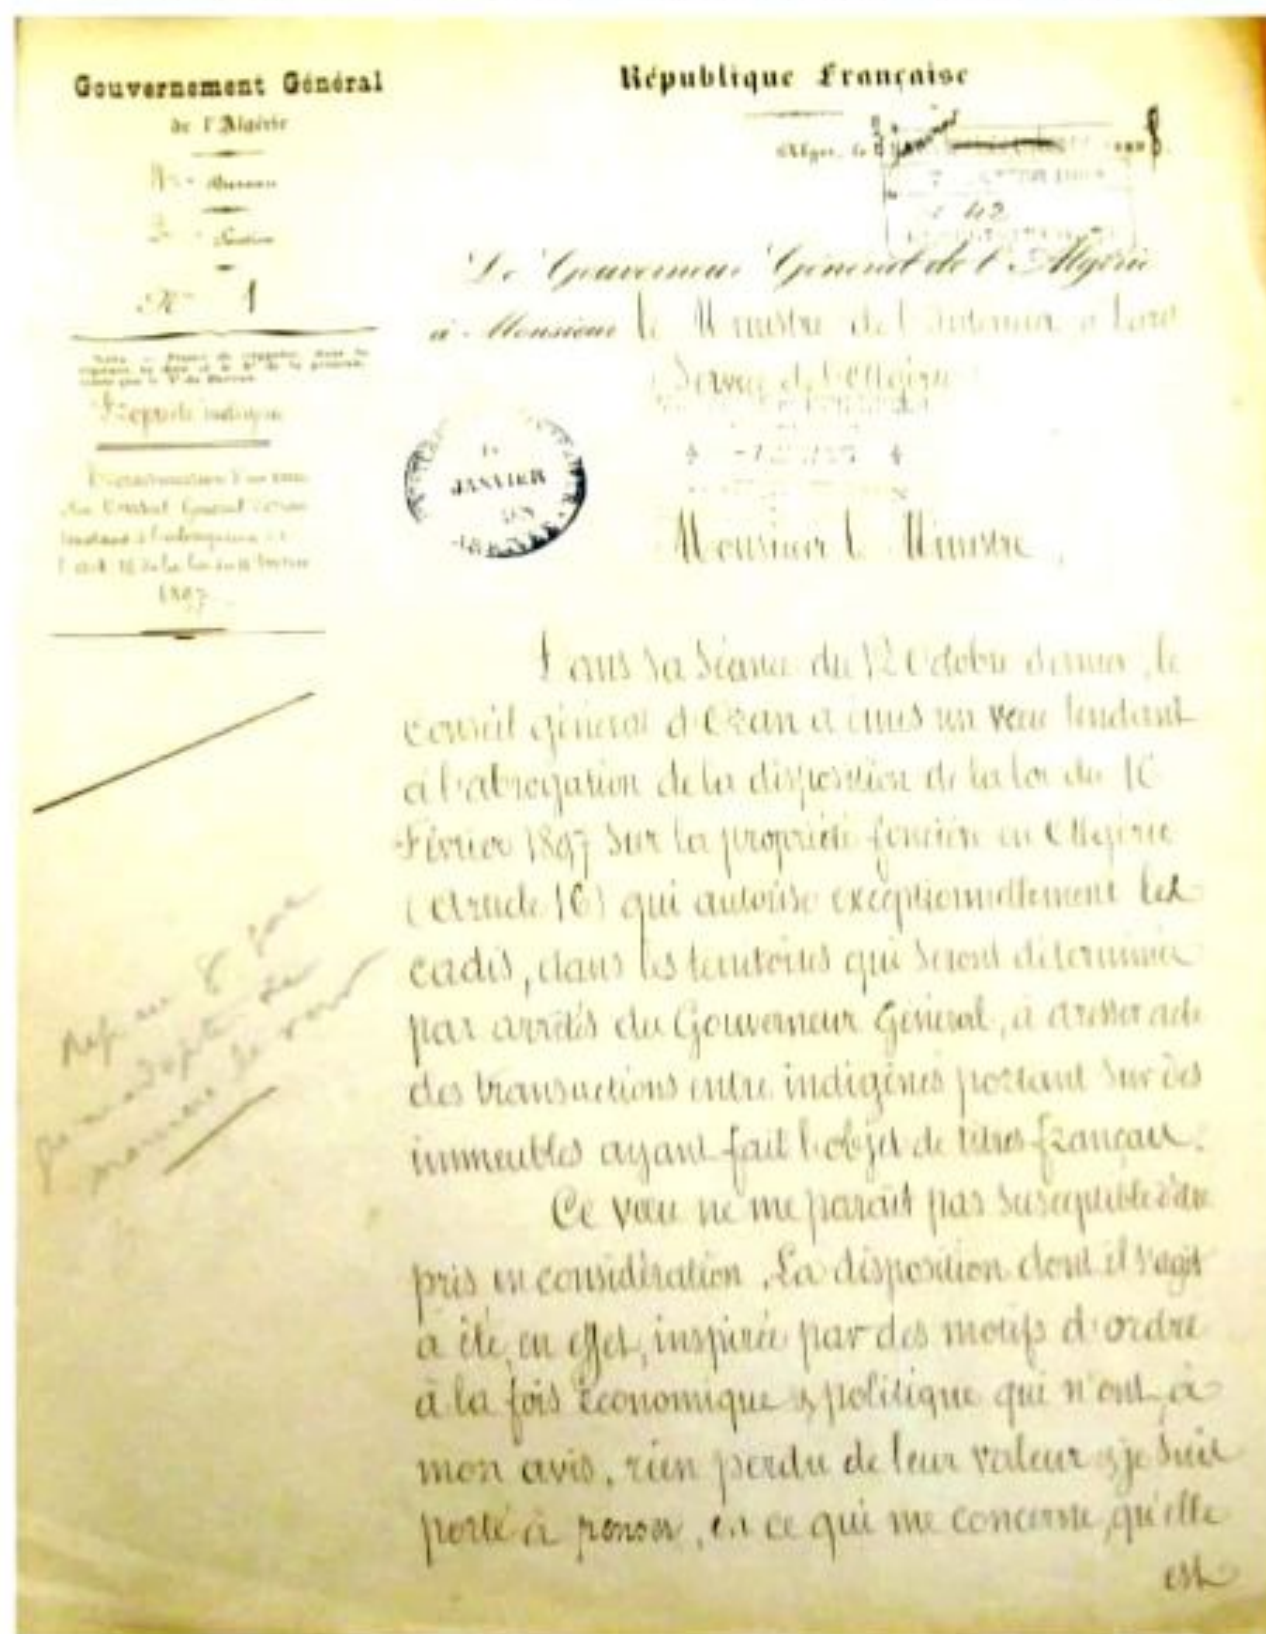 Gouvernement Général
de l'Algérie
Bureau
Section
N° 1
Propriété indigène
du Conseil Général d'Oran
tendant à l'abrogation de
l'art. 16 de la loi du 16 Février
1897
République Française
Alger, le
42
Le Gouverneur Général de l'Algérie
à Monsieur le Ministre de l'Intérieur à Paris
(Service de l'Algérie)
JANVIER
Monsieur le Ministre,
Dans sa séance du 12 Octobre dernier, le
Conseil général d'Oran a émis un vœu tendant
à l'abrogation de la disposition de la loi du 16
Février 1897 sur la propriété foncière en Algérie
(Article 16) qui autorise exceptionnellement les
cadis, dans les territoires qui seront déterminés
par arrêtés du Gouverneur Général, à dresser acte
des transactions entre indigènes portant sur des
immeubles ayant fait l'objet de titres français.
Ce vœu ne me paraît pas susceptible d'être
pris en considération. La disposition dont il s'agit
a été, en effet, inspirée par des motifs d'ordre
à la fois économique & politique qui n'ont, à
mon avis, rien perdu de leur valeur & je suis
porté à penser, en ce qui me concerne, qu'elle
est